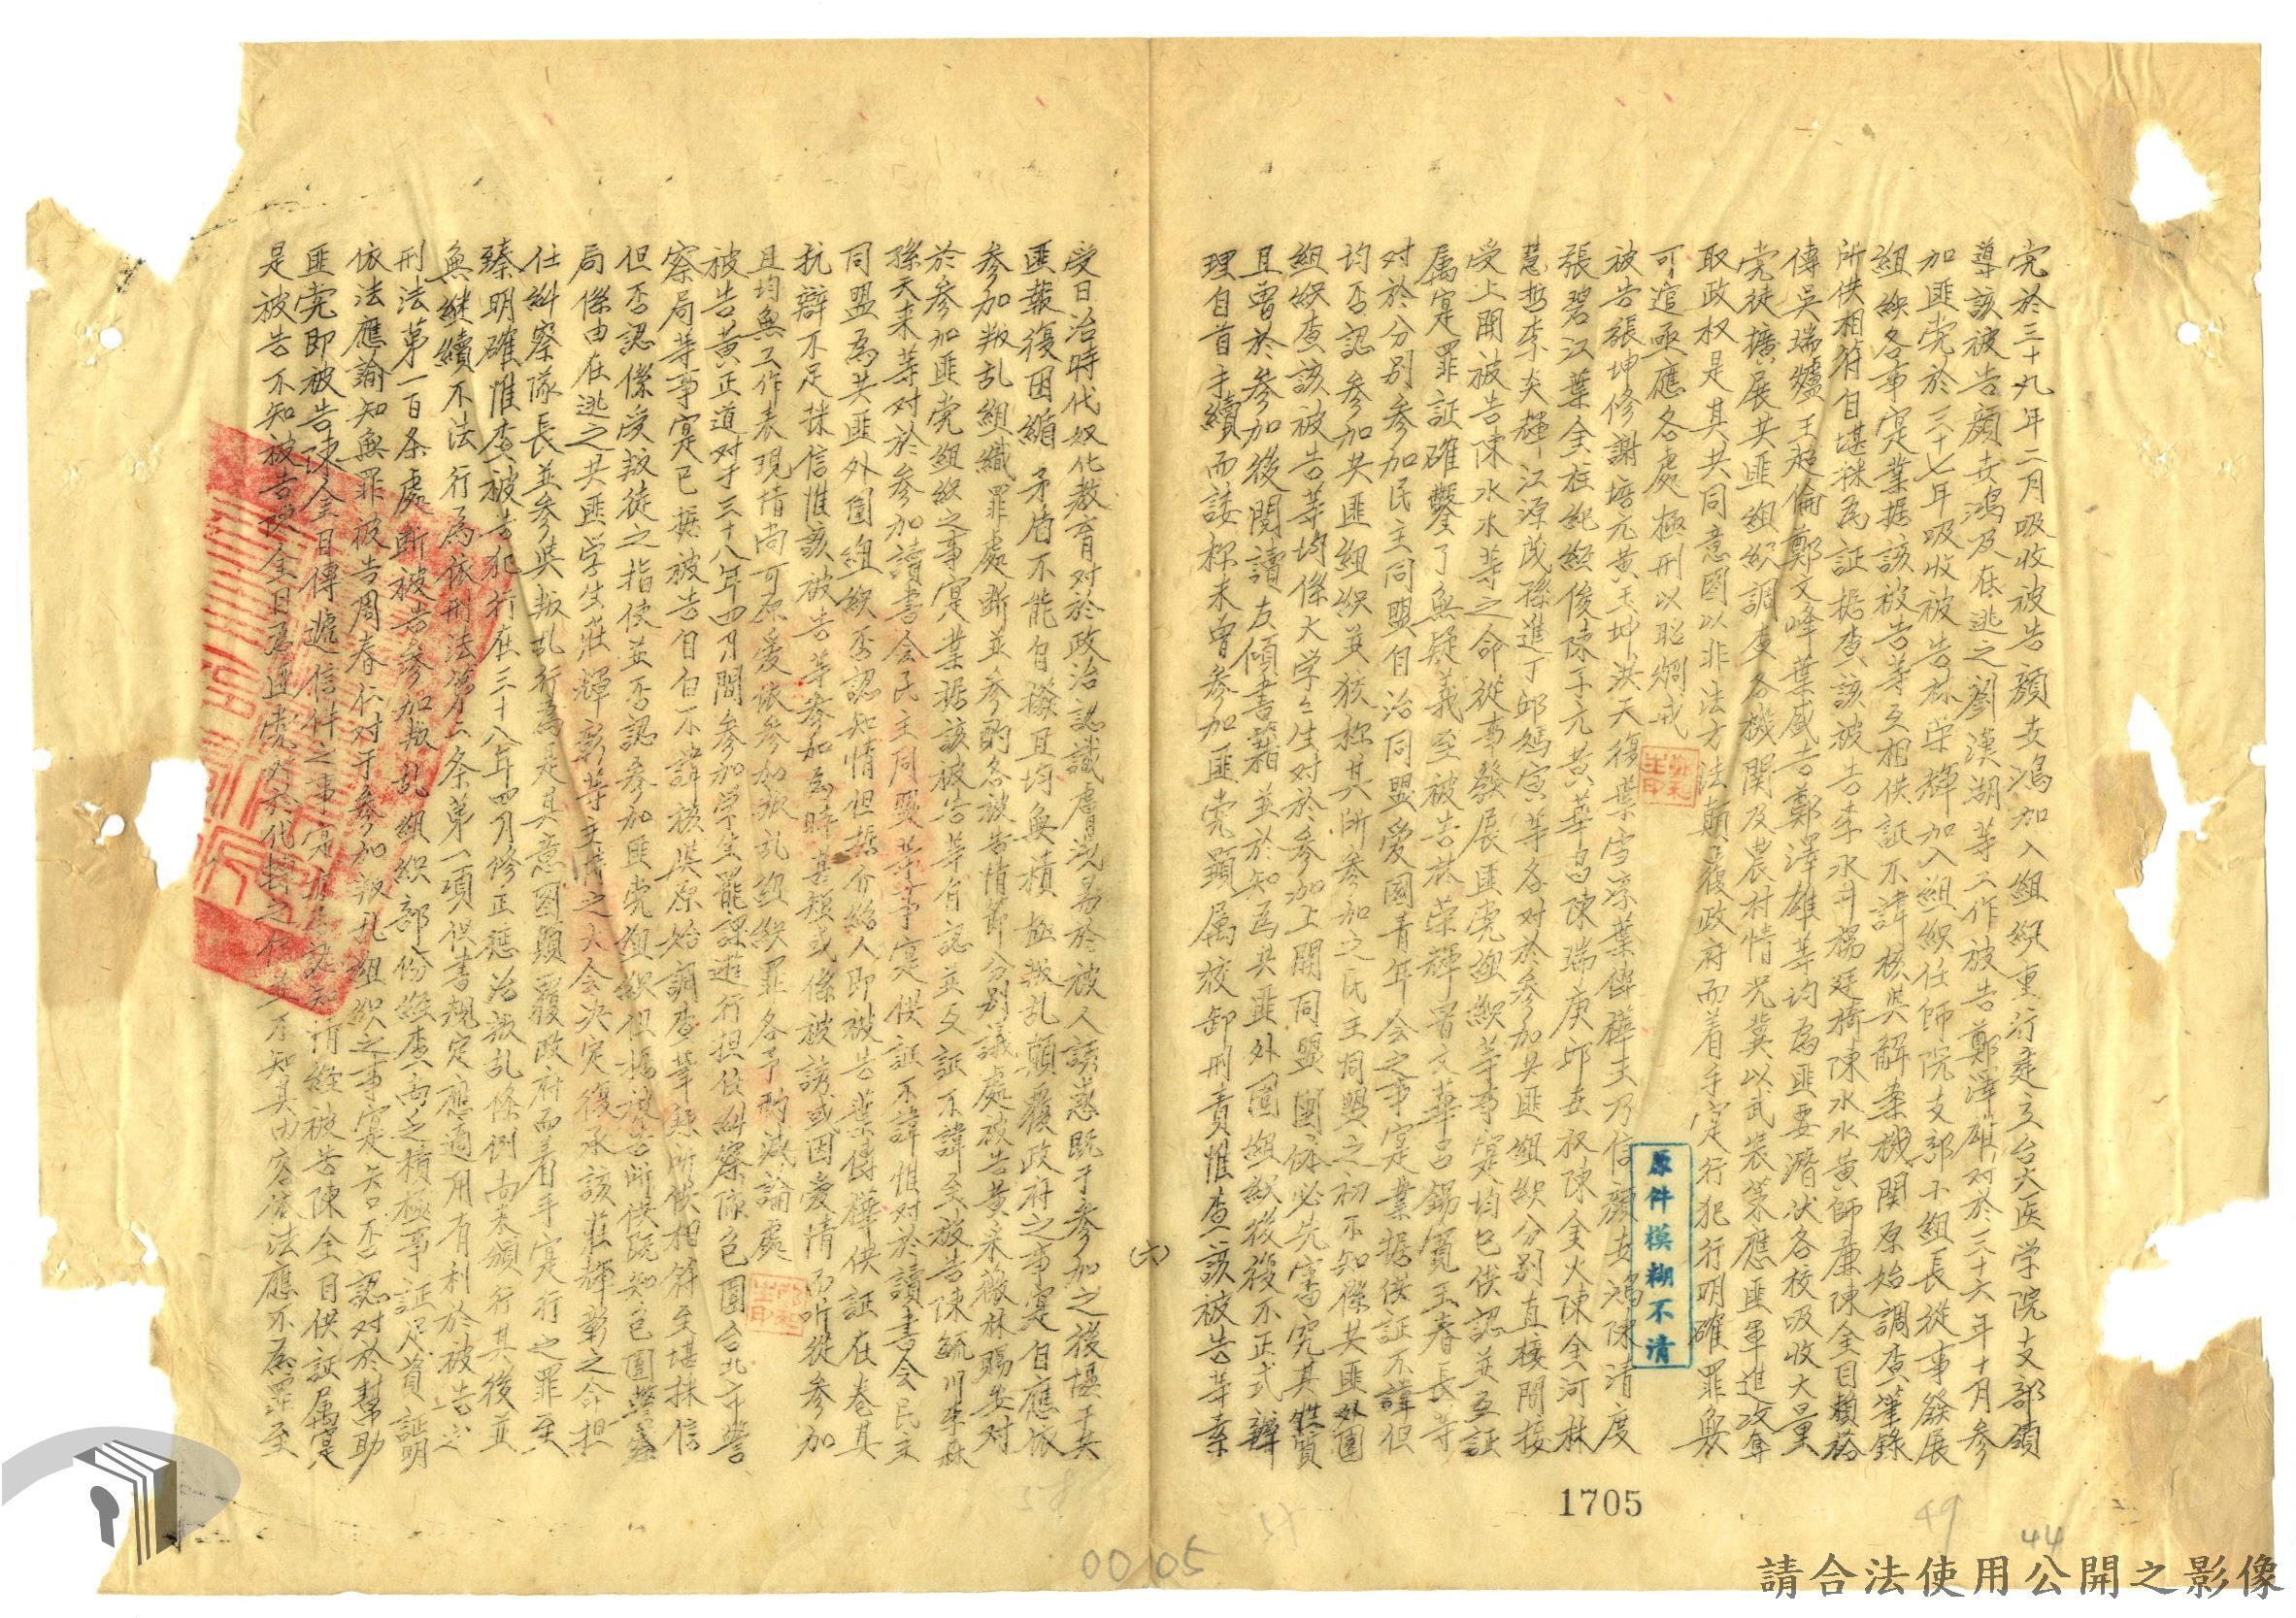 党於三十九年二月吸收被告顏世鴻加入組織重行建立台大医学院支部領
導該被告顏世鴻及在逃之劉漢湖等工作被告鄭澤雄对於三十六年十月參
加匪党於三十七年吸收被告林荣輝加入組織任師院支部小組長從事發展
組織各事寔業据該被告等互相供証不諱核與解案機関原始調查筆錄
所供相符自堪採為証据查該被告李水井楊廷椅陳水木黃師廉陳全目賴裕
傳吳瑞爐王超倫鄭文峰葉盛吉鄭澤雄等均為匪要潛伏各校吸收大量
党徒擴展共匪組織調查各機関及農村情况冀以武装策應匪軍進攻奪
取政权是其共同意图以非法方法顛覆政府而着手寔行犯行明確罪無
可逭亟應各處極刑以昭烱戒
被告張坤修謝培元黃玉坤洪天復葉雪淳葉傳樺王乃信顏世鴻陳清度
張碧江葉金柱紀經俊陳子元黃華昌陳瑞庚邱世权陳金火陳金河林
慧哲李炎輝江源茂孫進丁邱媽寅等各对於參加共匪組織分別直接間接
受上開被告陳水木等之命從事發展匪党組織等事寔均已供認並互証
属寔罪証確鑿了無疑義至被告林荣輝曾文華呂錫寬王春長等
对於分別參加民主同盟自治同盟愛國青年会之事寔業据供証不諱但
均否認參加共匪組織並狡称其所參加之民主同盟之初不知係共匪外圍
組織查該被告等均係大学生对於參加上開同盟團体必先審究其性質
且曾於參加後閱讀左傾書籍並於知為共匪外圍組織後復不正式辦
理自首手續而諉称未曾參加匪党顕属狡卸刑責惟查該被告等幸
受日治時代奴化教育对於政治認識膚浅易於被人誘惑既于參加之後惧于共
匪報復因循矛盾不能自拔且均無積極叛乱顛覆政府之事寔自應依
參加叛乱組織罪處断並參酌各被告情節分別議處被告黃采薇林賜安对
於參加匪党組織之事寔業据該被告等自認並互証不諱至被告陳毓川李森
孫天来等对於參加讀書会民主同盟等事寔供証不諱惟对於讀書会民主
同盟為共匪外圍組織否認知情但据介紹人即被告葉傳樺供証在卷其
抗辯不足採信惟該被告等參加為時甚短或係被誘或因愛情而听從參加
且均無工作表現情尚可原爰依參加叛乱組織罪各予酌減論處
被告黃正道对于三十八年四月間參加学生罷課遊行担任糾察隊包圍台北市警
察局等事寔已据被告自白不諱核與原始調查筆錄所供相符至堪採信
但否認係受叛徒之指使並否認參加匪党組織但据被告所供既知包圍警察
局係由在逃之共匪学生莊輝彰等主持之大会決定復承該莊輝彰之命担
任糾察隊長並參與叛乱行為是其意图顛覆政府而着手寔行之罪至
臻明確惟查被告犯行在三十八年四月修正懲治叛乱條例尚未頒行其後並
無継續不法行為依刑法第二条第一項但書規定應適用有利於被告之
刑法第一百条處断被告參加叛乱組織部份經查尚乏積極事証足資証明
依法應諭知無罪被告周春仁对于參加叛乱組織之事寔矢口否認对於幫助
匪党即被告陳全目傳遞信件之事寔知情經被告陳全目供証属寔
是被告不知被告陳全目為匪党对於代轉之信並不知其内容依法應不為罪至
(六)
原件模糊不清
1705
00105
49
44
請合法使用公開之影像